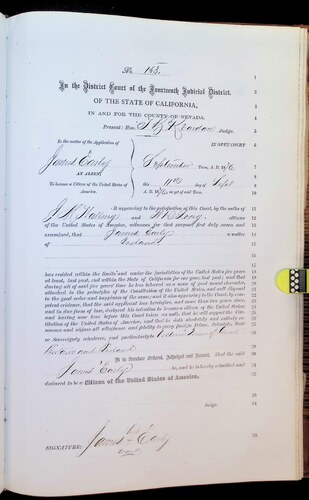 No. 163.
In the District Court of the Fourteenth Judicial District,
OF THE STATE OF CALIFORNIA,
IN AND FOR THE COUNTY OF NEVADA.
Present: Hon. T. B. Reardon Judge.
In the matter of the Application of
IN OPEN COURT
James Early
AN ALIEN,
September Term, A. D.
To become a Citizen of the United States of America.
this 11th day of Sept
A. D.
It appearing to the satisfaction of this Court, by the
citizens
of the United States of America, witnesses for that purpose first duly sworn and
examined, that James Early a native
of Ireland
has resided within the limits and under the jurisdiction of the United States five years
at least, last past, and within the State of California for one year, last past; and that
during all of said five years' time he has behaved as a man of good moral character,
attached to the principles of the Constitution of the United States, and well disposed
to the good order and happiness of the same; and it also appearing to the Court, by com-
petent evidence, that the said applicant has heretofore, and more than two years since,
and in due form of law, declared his intention to become a citizen of the United States
and having now here before this Court taken an oath, that he will support the Con-
stitution of the United States of America, and that he doth absolutely and entirely re-
nounce and abjure all allegiance and fidelity to every foreign Prince, Potentate, State
or Sovereignty whatever, and particularly to Victoria Queen of Great
Britain and Ireland
It is therefore Ordered, Adjudged and Decreed, That the said
James Early be, and he is hereby admitted and
declared to be a Citizen of the United States of America.
Judge.
SIGNATURE: James Early